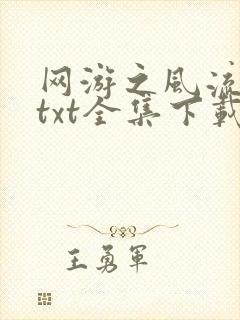 网游之风流
txt全集下载
王勇军